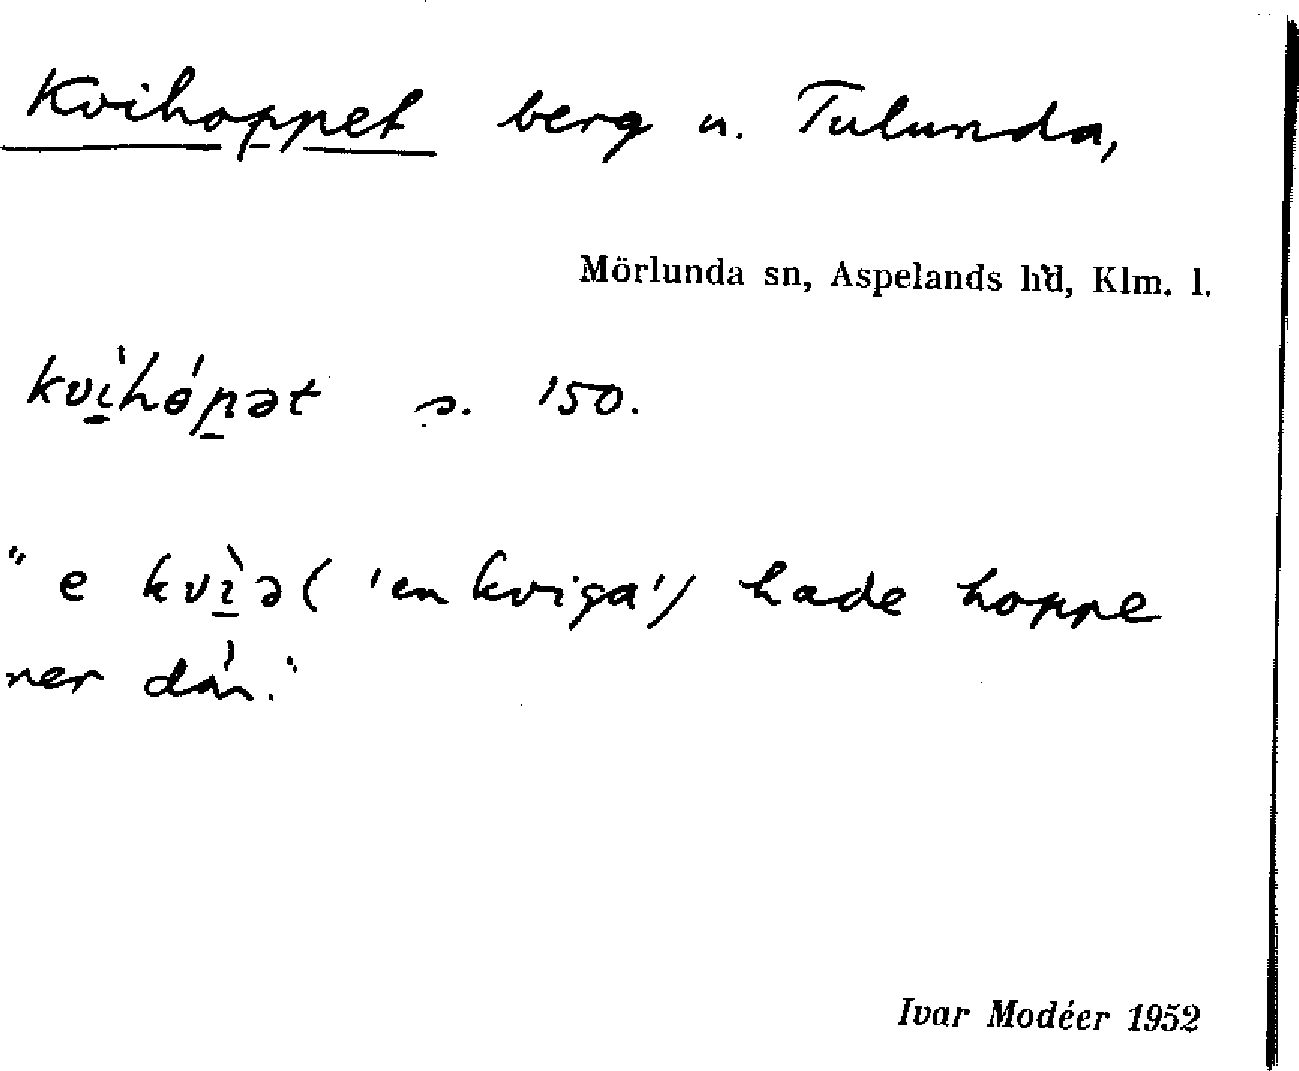 Kvihoppet berg u. Tulunda,
Mörlunda sn, Aspelands hd, Klm. l.
kvì̠hɵ́p̠ət s. '50.
"e kvì̠ə ('en kviga') hade hoppe
ner dàn."
Ivar Modéer 1952